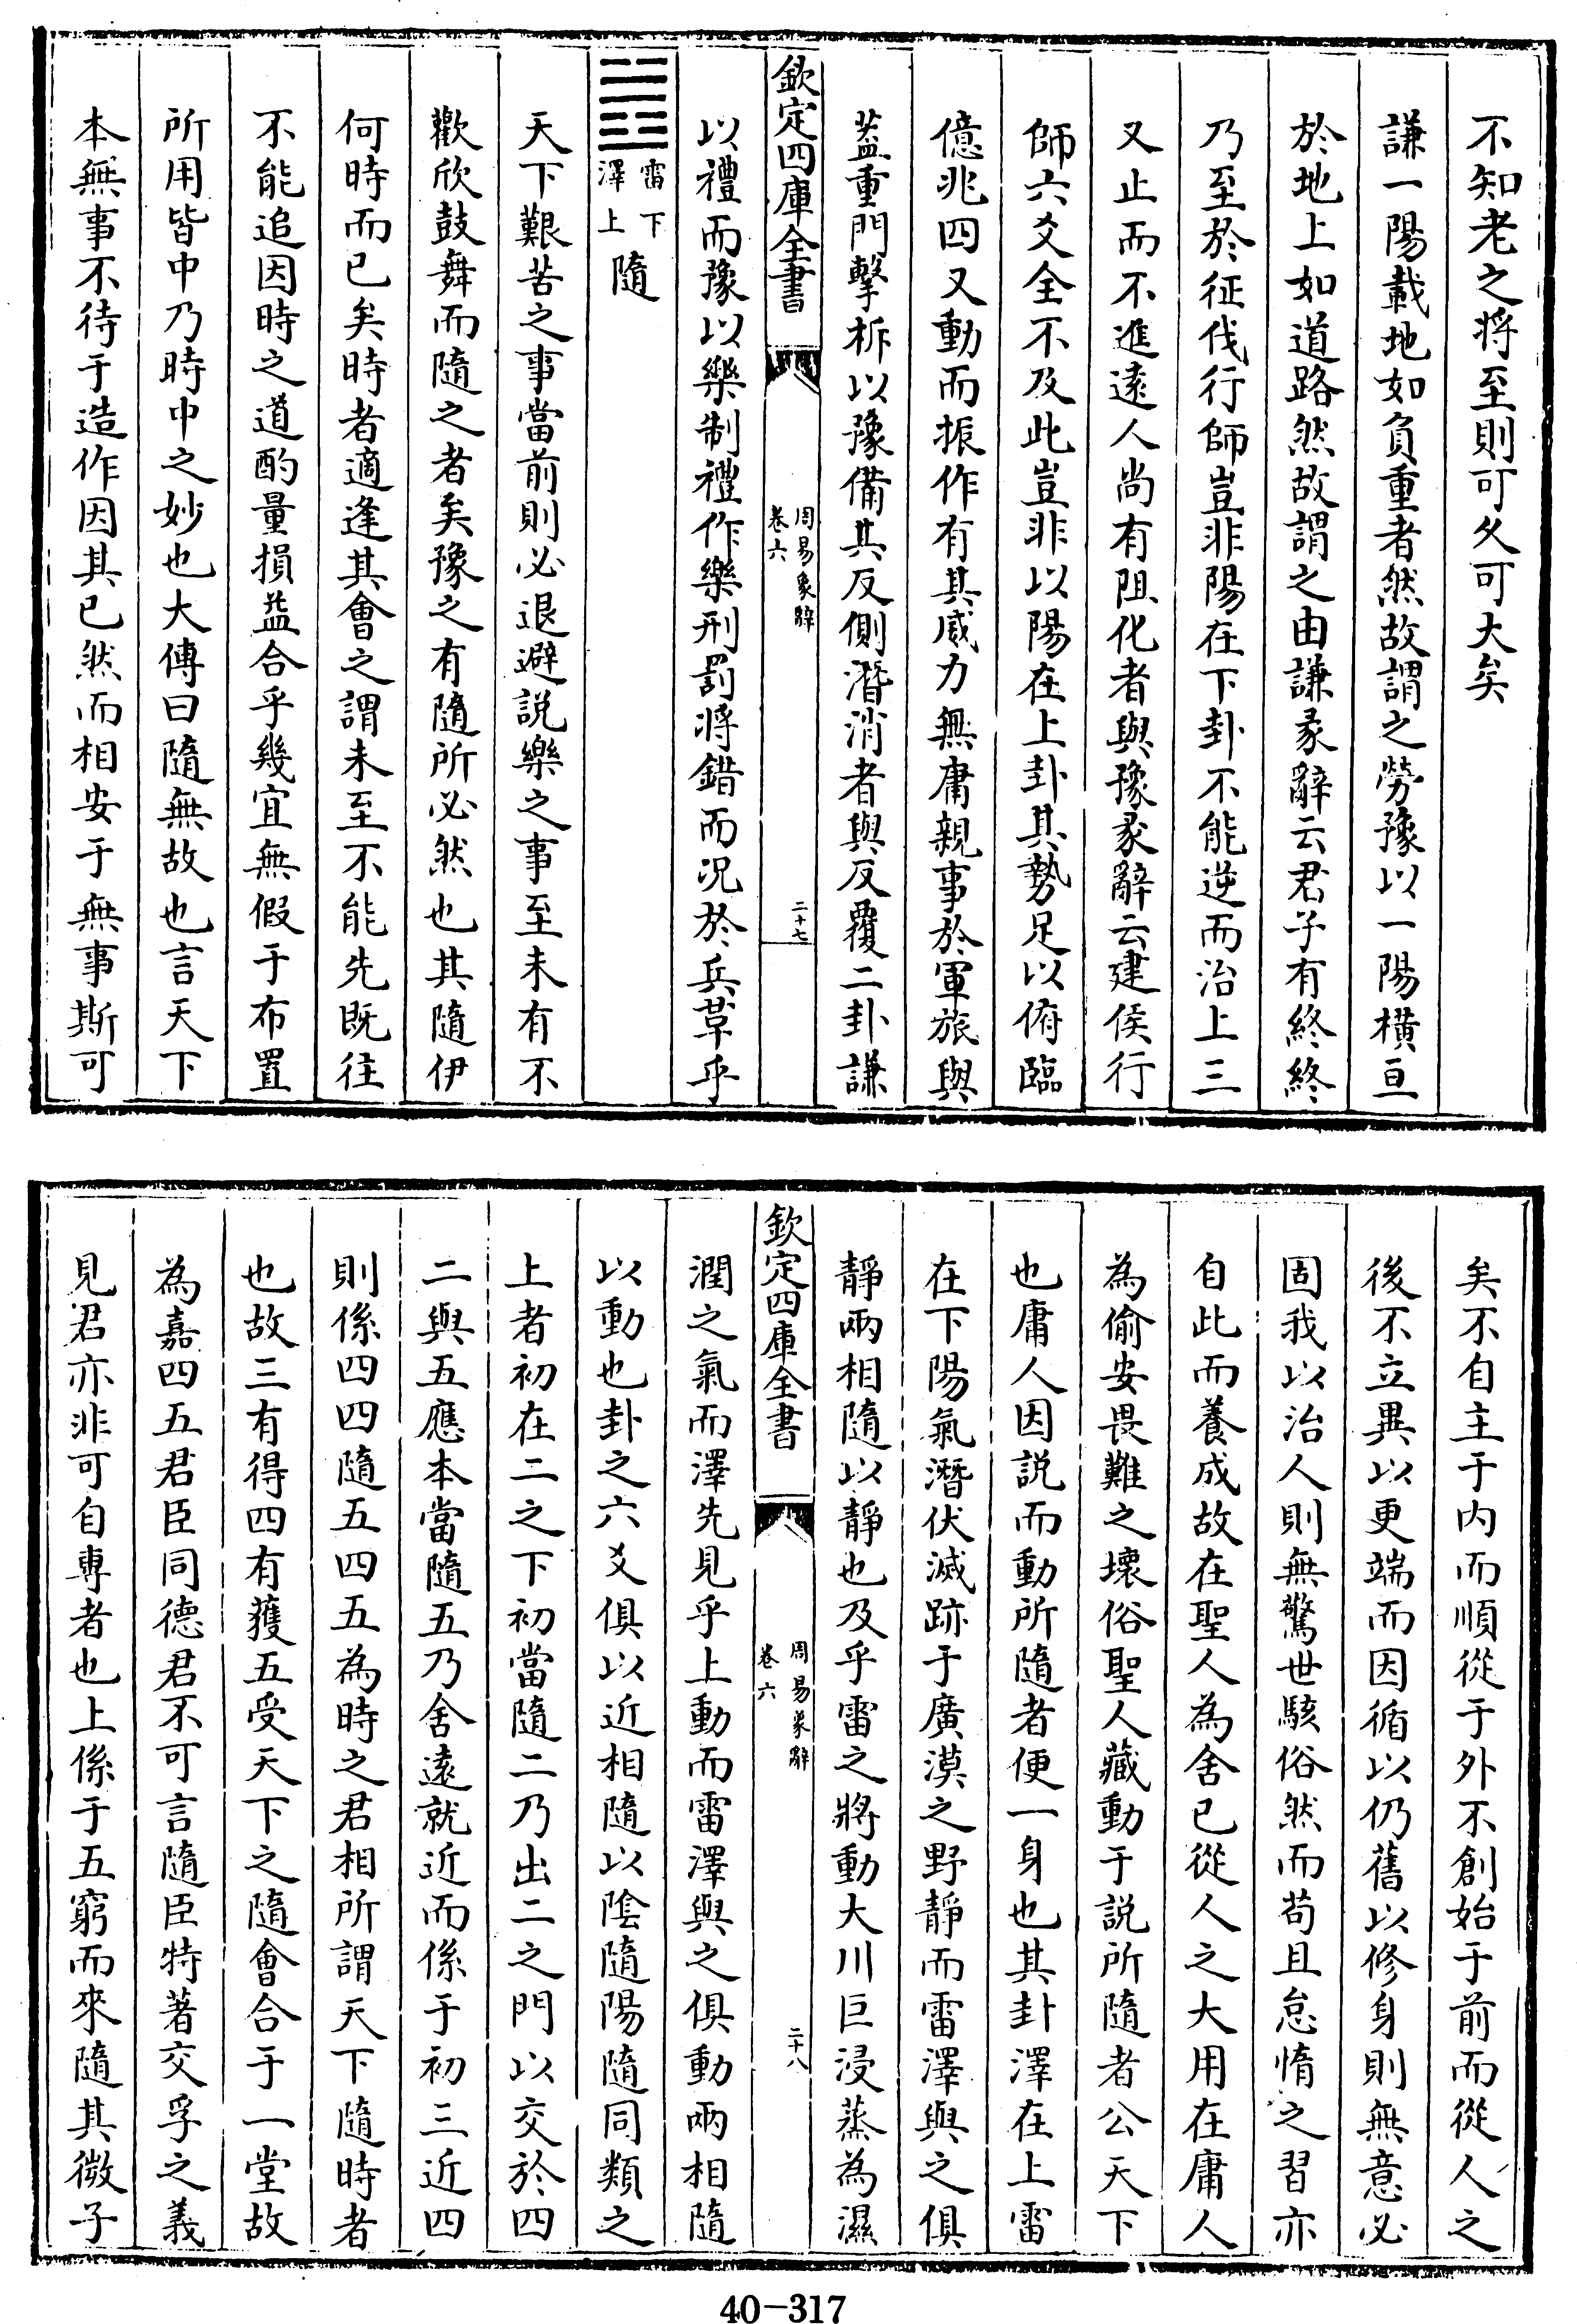 不知老之将至則可久可大矣
謙一陽載地如負重者然故謂之勞豫以一陽橫亘
於地上如道路然故謂之由謙彖辭云君子有終終
乃至於征伐行師豈非陽在下卦不能逆而治上三
又止而不進遠人尚有阻化者與豫彖辭云建侯行
師六爻全不及此豈非以陽在上卦其勢足以俯臨
億兆四又動而振作有其威力無庸親事於軍旅與
蓋重門擊柝以豫備其反側潛消者與反覆二卦謙
欽定四庫全書
周易象辭
卷六
二十七
以禮而豫以樂制禮作樂刑罰將錯而況於兵革乎
雷下
澤上
隨
天下艱苦之事當前則必退避説樂之事至未有不
歡欣鼓舞而隨之者矣豫之有隨所必然也其隨伊
何時而已矣時者適逢其會之謂未至不能先既往
不能追因時之道酌量損益合乎幾宜無假于布置
所用皆中乃時中之妙也大傳曰隨無故也言天下
本無事不待于造作因其已然而相安于無事斯可
矣不自主于内而順從于外不創始于前而從人之
後不立異以更端而因循以仍舊以修身則無意必
固我以治人則無驚世駭俗然而苟且怠惰之習亦
自此而養成故在聖人為舍已從人之大用在庸人
為偷安畏難之壞俗聖人藏動于説所隨者公天下
也庸人因説而動所隨者便一身也其卦澤在上雷
在下陽氣潛伏滅跡于廣漠之野靜而雷澤與之俱
靜兩相隨以靜也及乎雷之將動大川巨浸蒸為濕
欽定四庫全書
周易象辭
卷六
二十八
潤之氣而澤先見乎上動而雷澤與之俱動兩相隨
以動也卦之六爻俱以近相隨以陰隨陽隨同類之
上者初在二之下初當隨二乃出二之門以交於四
二與五應本當隨五乃舍遠就近而係于初三近四
則係四四隨五四五為時之君相所謂天下隨時者
也故三有得四有獲五受天下之隨會合于一堂故
為嘉四五君臣同德君不可言隨臣特著交孚之義
見君亦非可自專者也上係于五窮而來隨其微子
40-317